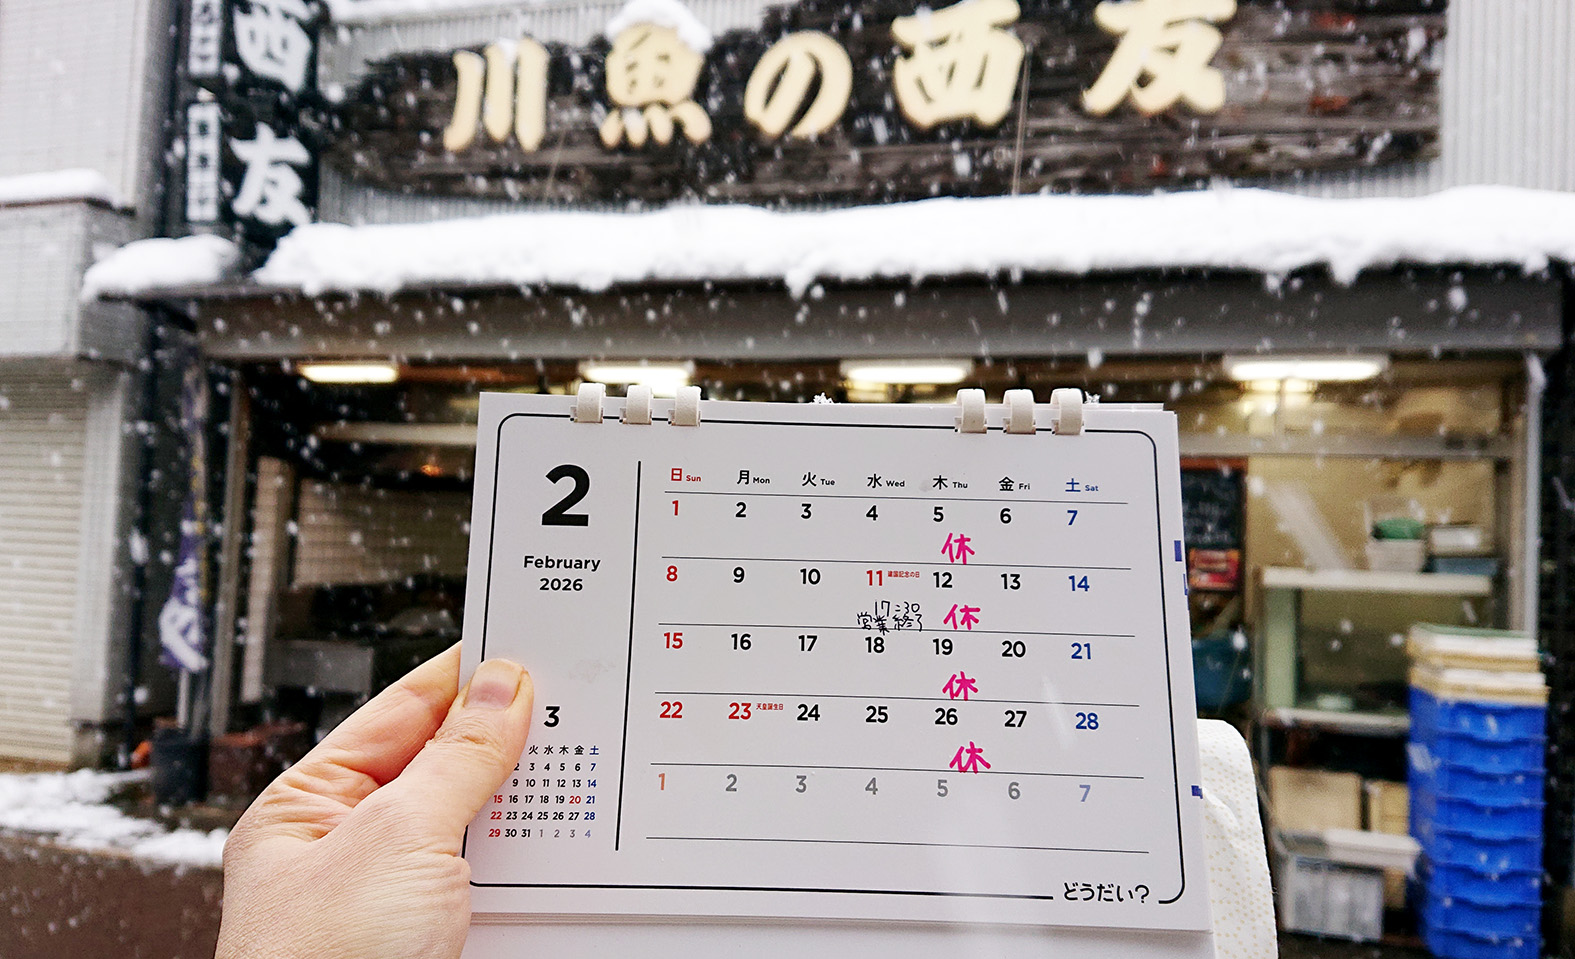 川魚の西友
西友
2
February
2026
日 Sun 月 Mon 火 Tue 水 Wed 木 Thu 金 Fri 土 Sat
1 2 3 4 5 6 7
休
8 9 10 11 建国記念の日 12 13 14
17:30
営業終了 休
15 16 17 18 19 20 21
休
22 23 天皇誕生日 24 25 26 27 28
休
1 2 3 4 5 6 7
3
火 水 木 金 土
2 3 4 5 6 7
9 10 11 12 13 14
15 16 17 18 19 20 21
22 23 24 25 26 27 28
29 30 31 1 2 3 4
どうだい?